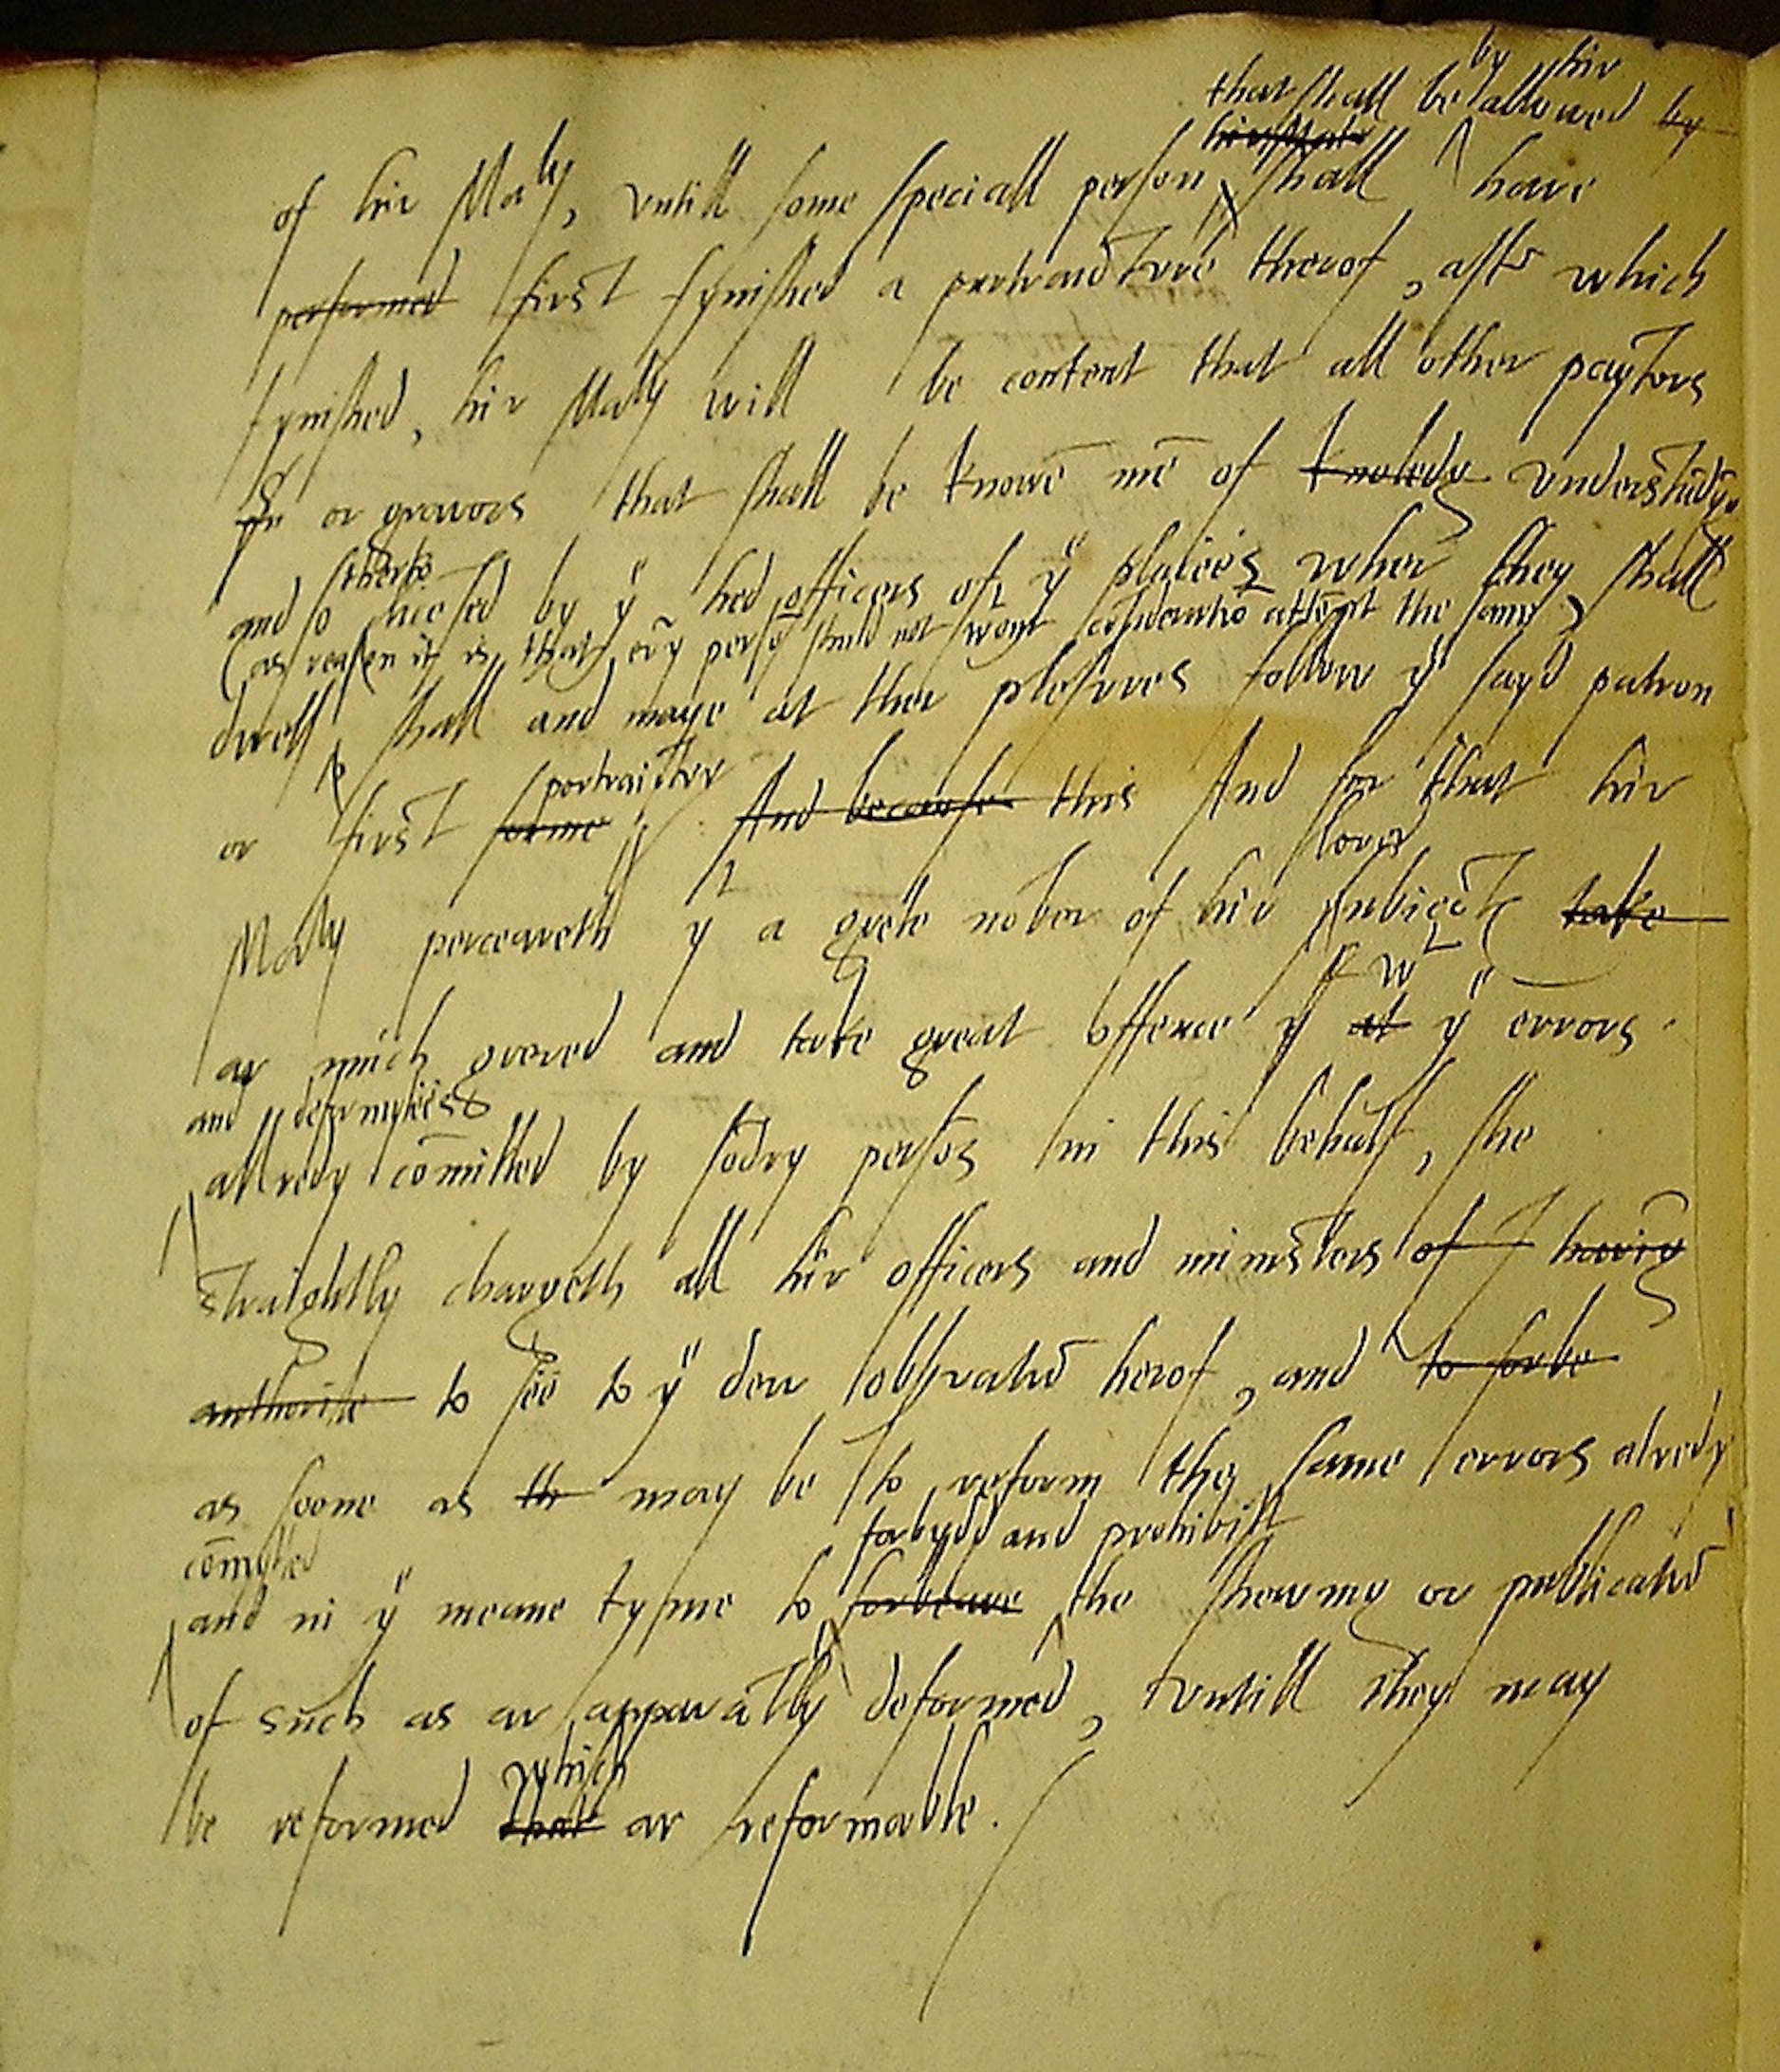 by hir
that shall be allowed by
hir Maty
of hir Maty, untill some speciall person shall have
performed first fynished a portraicture therof, aftr which
fynished, hir Maty will be content that all other payntors
or gravors that shall be knowē mē of knoledg understādyg
therto
and so lice sed by ye hed officers of ye plaices wher they shall
(as reason it is that, evy persō shuld not wt out cōsideratiō attēpt the same)
dwell, shall and maye at ther plesures follow ye sayd patron
portraictur
or first forme . And because this And for that hir
lovīg
Maty perceaveth yt a grete nōber of hir subiects take
wt
ar much greved and take great offence yt at ye errors
and deformyties
allredy cōmitted by sōdry persōs in this behalf, she
straightly chargeth all hir officers and ministers of havīg
authorite to see to ye dew observatiō herof, and to forbe
as soone as the may be to reform the same errors alredy
cōmytted
forbydd and prohibitt
and in ye meane tyme to forbeare the shewing or publicatiō
of such as ar apparātly deformed, untill they may
which
be reformed that ar reformable.